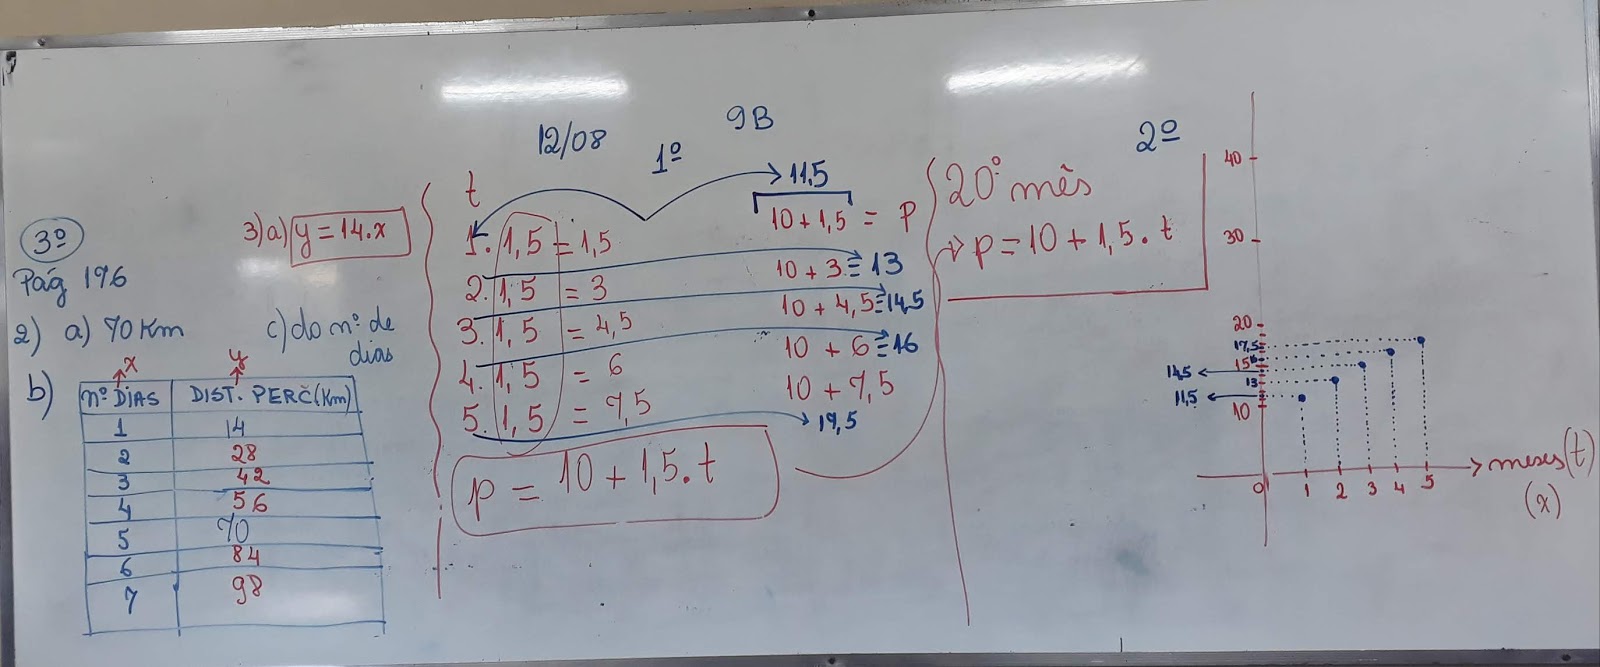 12/08
9B
3º
Pág 196
3) a) y = 14.x
2) a) 70 Km
c) do nº de
dias
b)
x
y
nº DIAS DIST. PERC (Km)
1 14
2 28
3 42
4 56
5 70
6 84
7 98
1º
t
11,5
1. 1,5 = 1,5
10 + 1,5 = p
2. 1,5 = 3
10 + 3 = 13
3. 1,5 = 4,5
10 + 4,5 = 14,5
4. 1,5 = 6
10 + 6 = 16
5. 1,5 = 7,5
10 + 7,5
17,5
p = 10 + 1,5.t
20º mês
p = 10 + 1,5.t
2º
40
30
20
17,5
16
15
14,5
13
11,5
10
0 1 2 3 4 5
meses (t)
(x)